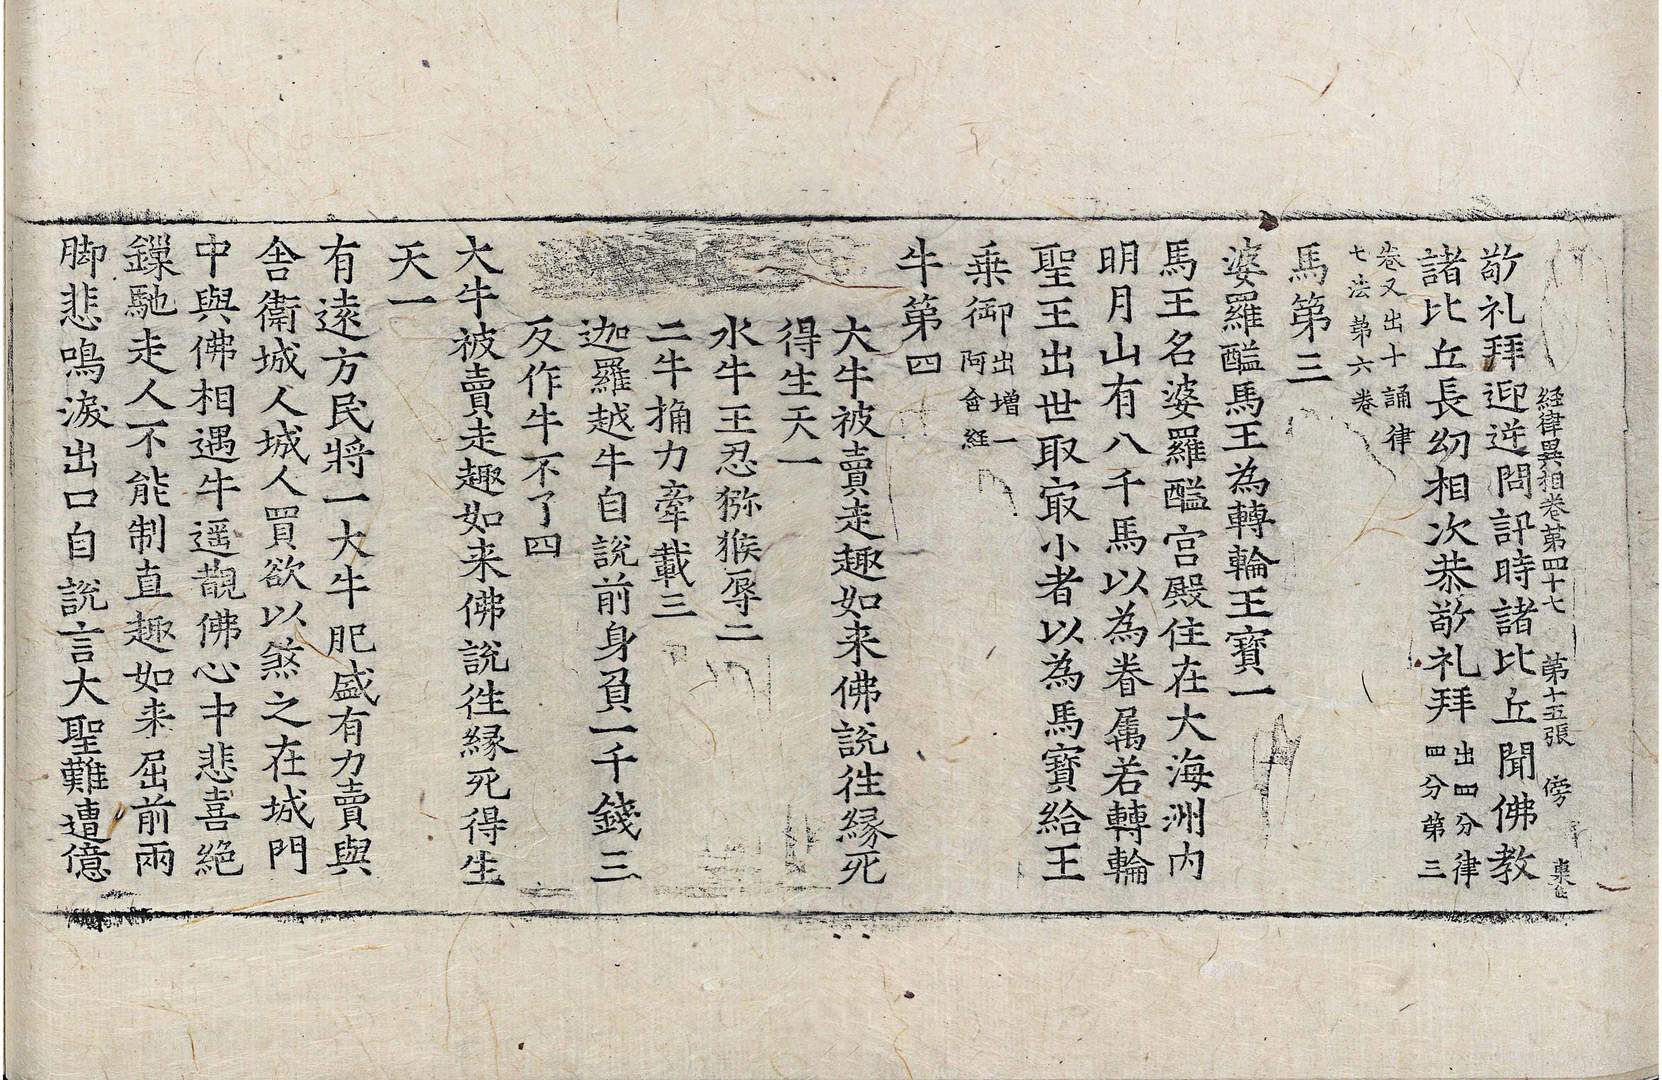 経律異相卷第四十七 第十五張 傍
敬礼拜迎逆問訊時諸比丘聞佛教
諸比丘長㓜相次恭敬礼拜出四分律四分第三
卷又出十誦律七法第六卷
馬第三
婆羅醯馬王為轉輪王寶一
馬王名婆羅醯宮殿住在大海洲内
明月山有八千馬以為眷属若轉輪
聖王出世取㝡小者以為馬寶給王
乗御出增一阿含経
牛第四
大牛被賣走趣如来佛說往縁死
得生天一
水牛王忍猕猴辱二
二牛捔力牽載三
迦羅越牛自說前身負一千錢三
反作牛不了四
大牛被賣走趣如来佛說往縁死得生
天一
有遠方民將一大牛肥盛有力賣與
舍衛城人城人買欲以煞之在城門
中與佛相遇牛遥覩佛心中悲喜絶
鏁馳走人不能制直趣如来屈前兩
脚悲鳴淚出口自說言大聖難遭億